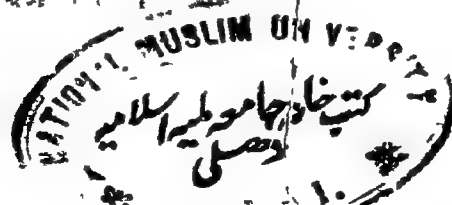 NATIONAL MUSLIM UNIVERSITY
کتب خانہ جامعہ ملیہ اسلامیہ
دھلی